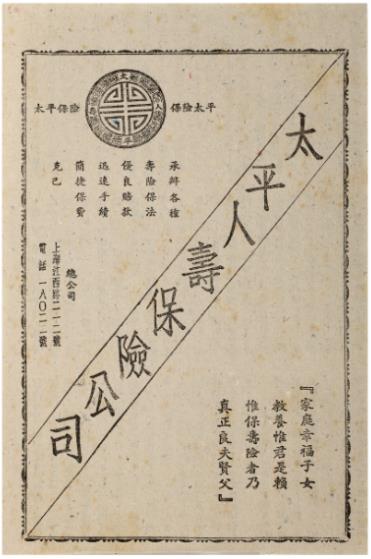 太平保險
保險太平
太平人壽保險公司
承辦各種
壽險保法
優良賠款
迅速手續
簡捷保費
克己
總公司
上海江西路二一二號
電話 一八〇二一號
『家庭幸福子女
教養惟君是賴
惟保壽險者乃
真正良夫賢父』